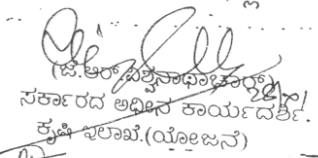 (ಜೆ.ಆರ್.ವಿಶ್ವನಾಥಾಚಾರ್)
ಸರ್ಕಾರದ ಅಧೀನ ಕಾರ್ಯದರ್ಶಿ.
ಕೃಷಿ ಇಲಾಖೆ.(ಯೋಜನೆ)